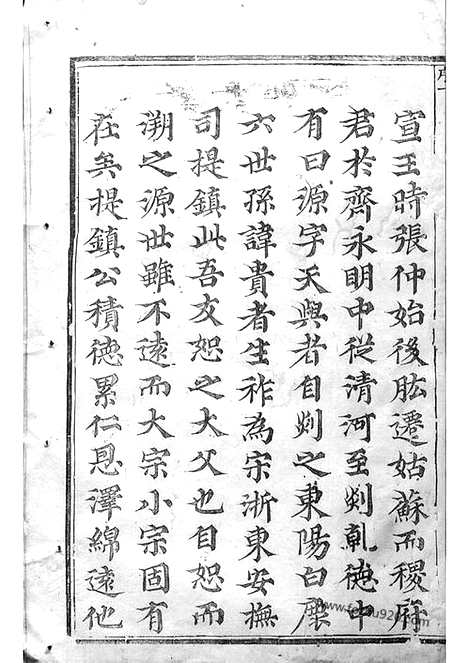 宣王時張仲始後肱遷姑蘇而稷府
君於齊永明中從清河至剡乹德中
有曰源字天與者自剡之東陽白塵
六世孫諱貴者生祚為宋浙東安撫
司提鎮此吾友恕之大父也自恕而
溯之源世雖不遠而大宗小宗固有
在矣提鎮公積德累仁恩澤綿遠他